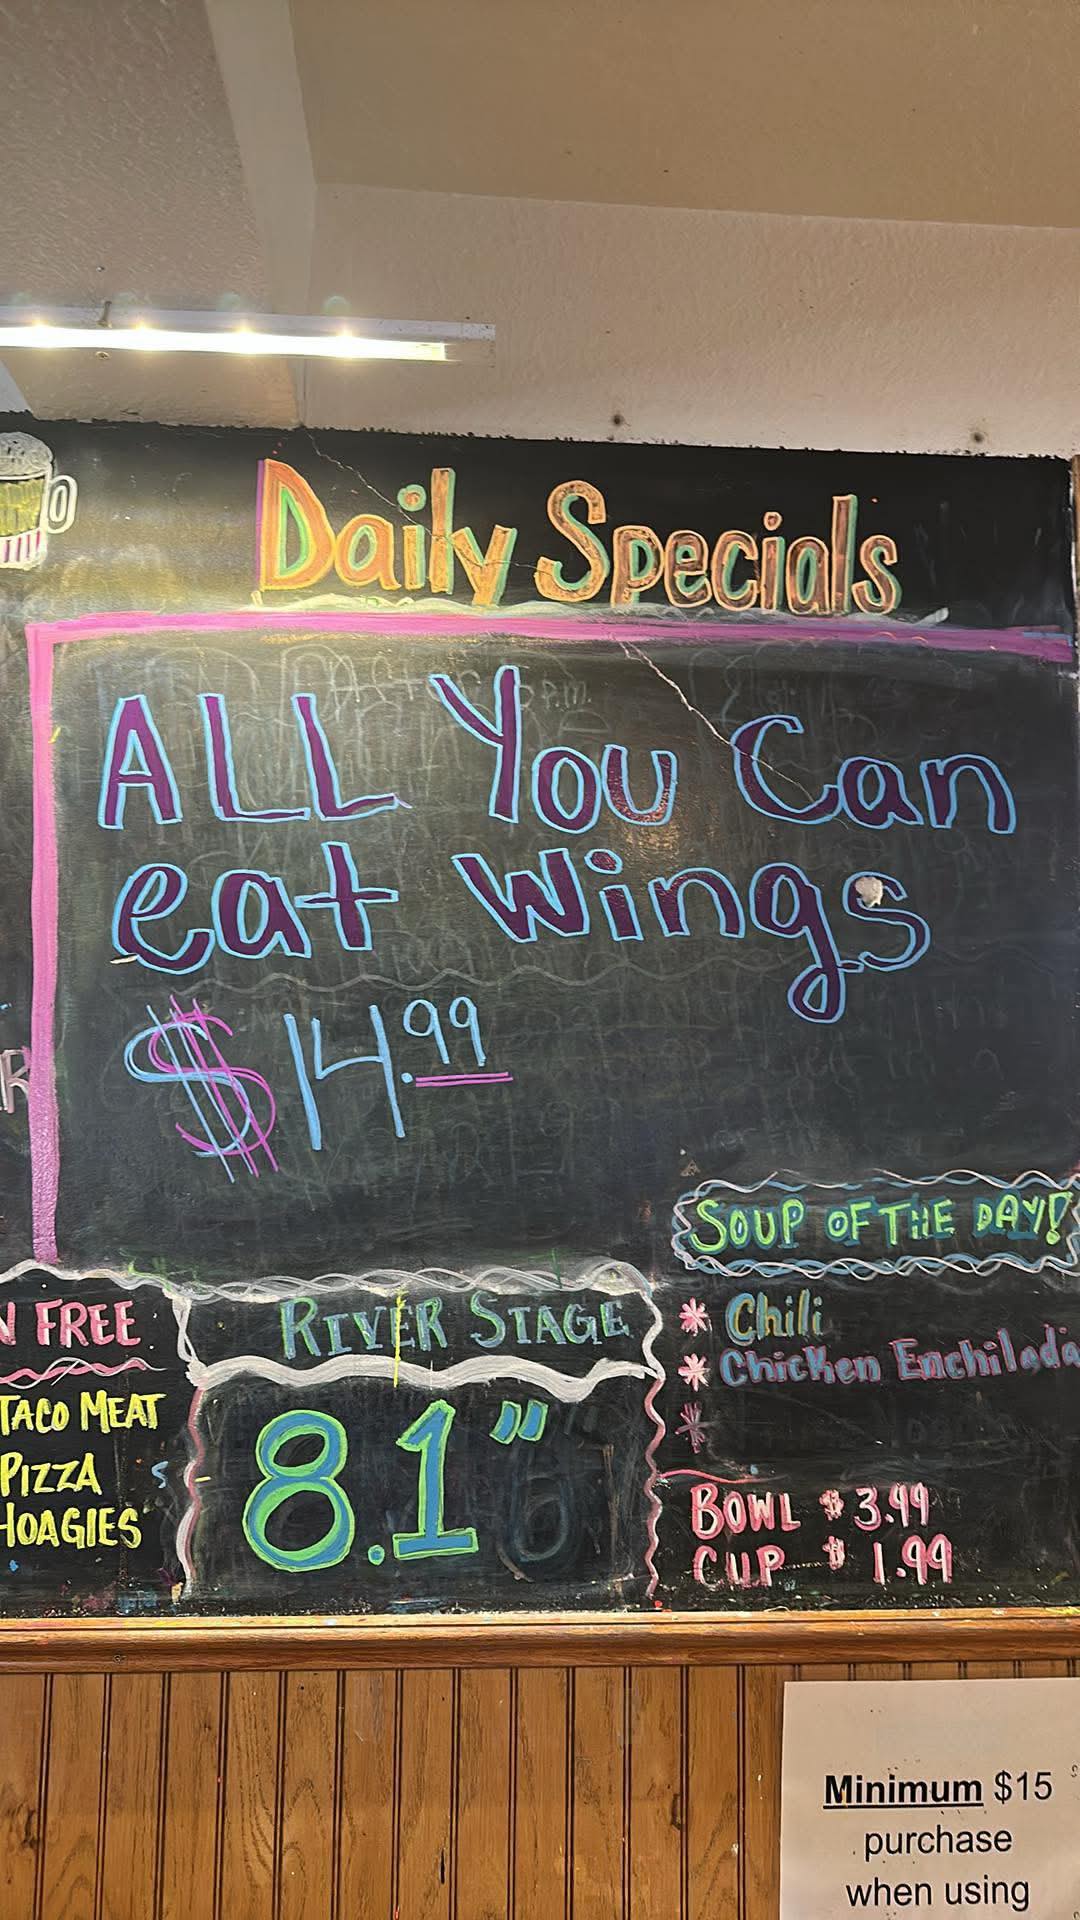 Daily Specials
ALL You Can
eat Wings
$14.99
SOUP OF THE DAY!
* Chili
* Chicken Enchilada
*
BOWL $3.99
CUP $1.99
RIVER STAGE
8.1"
N FREE
TACO MEAT
PIZZA
HOAGIES
R
Minimum $15
purchase
when using